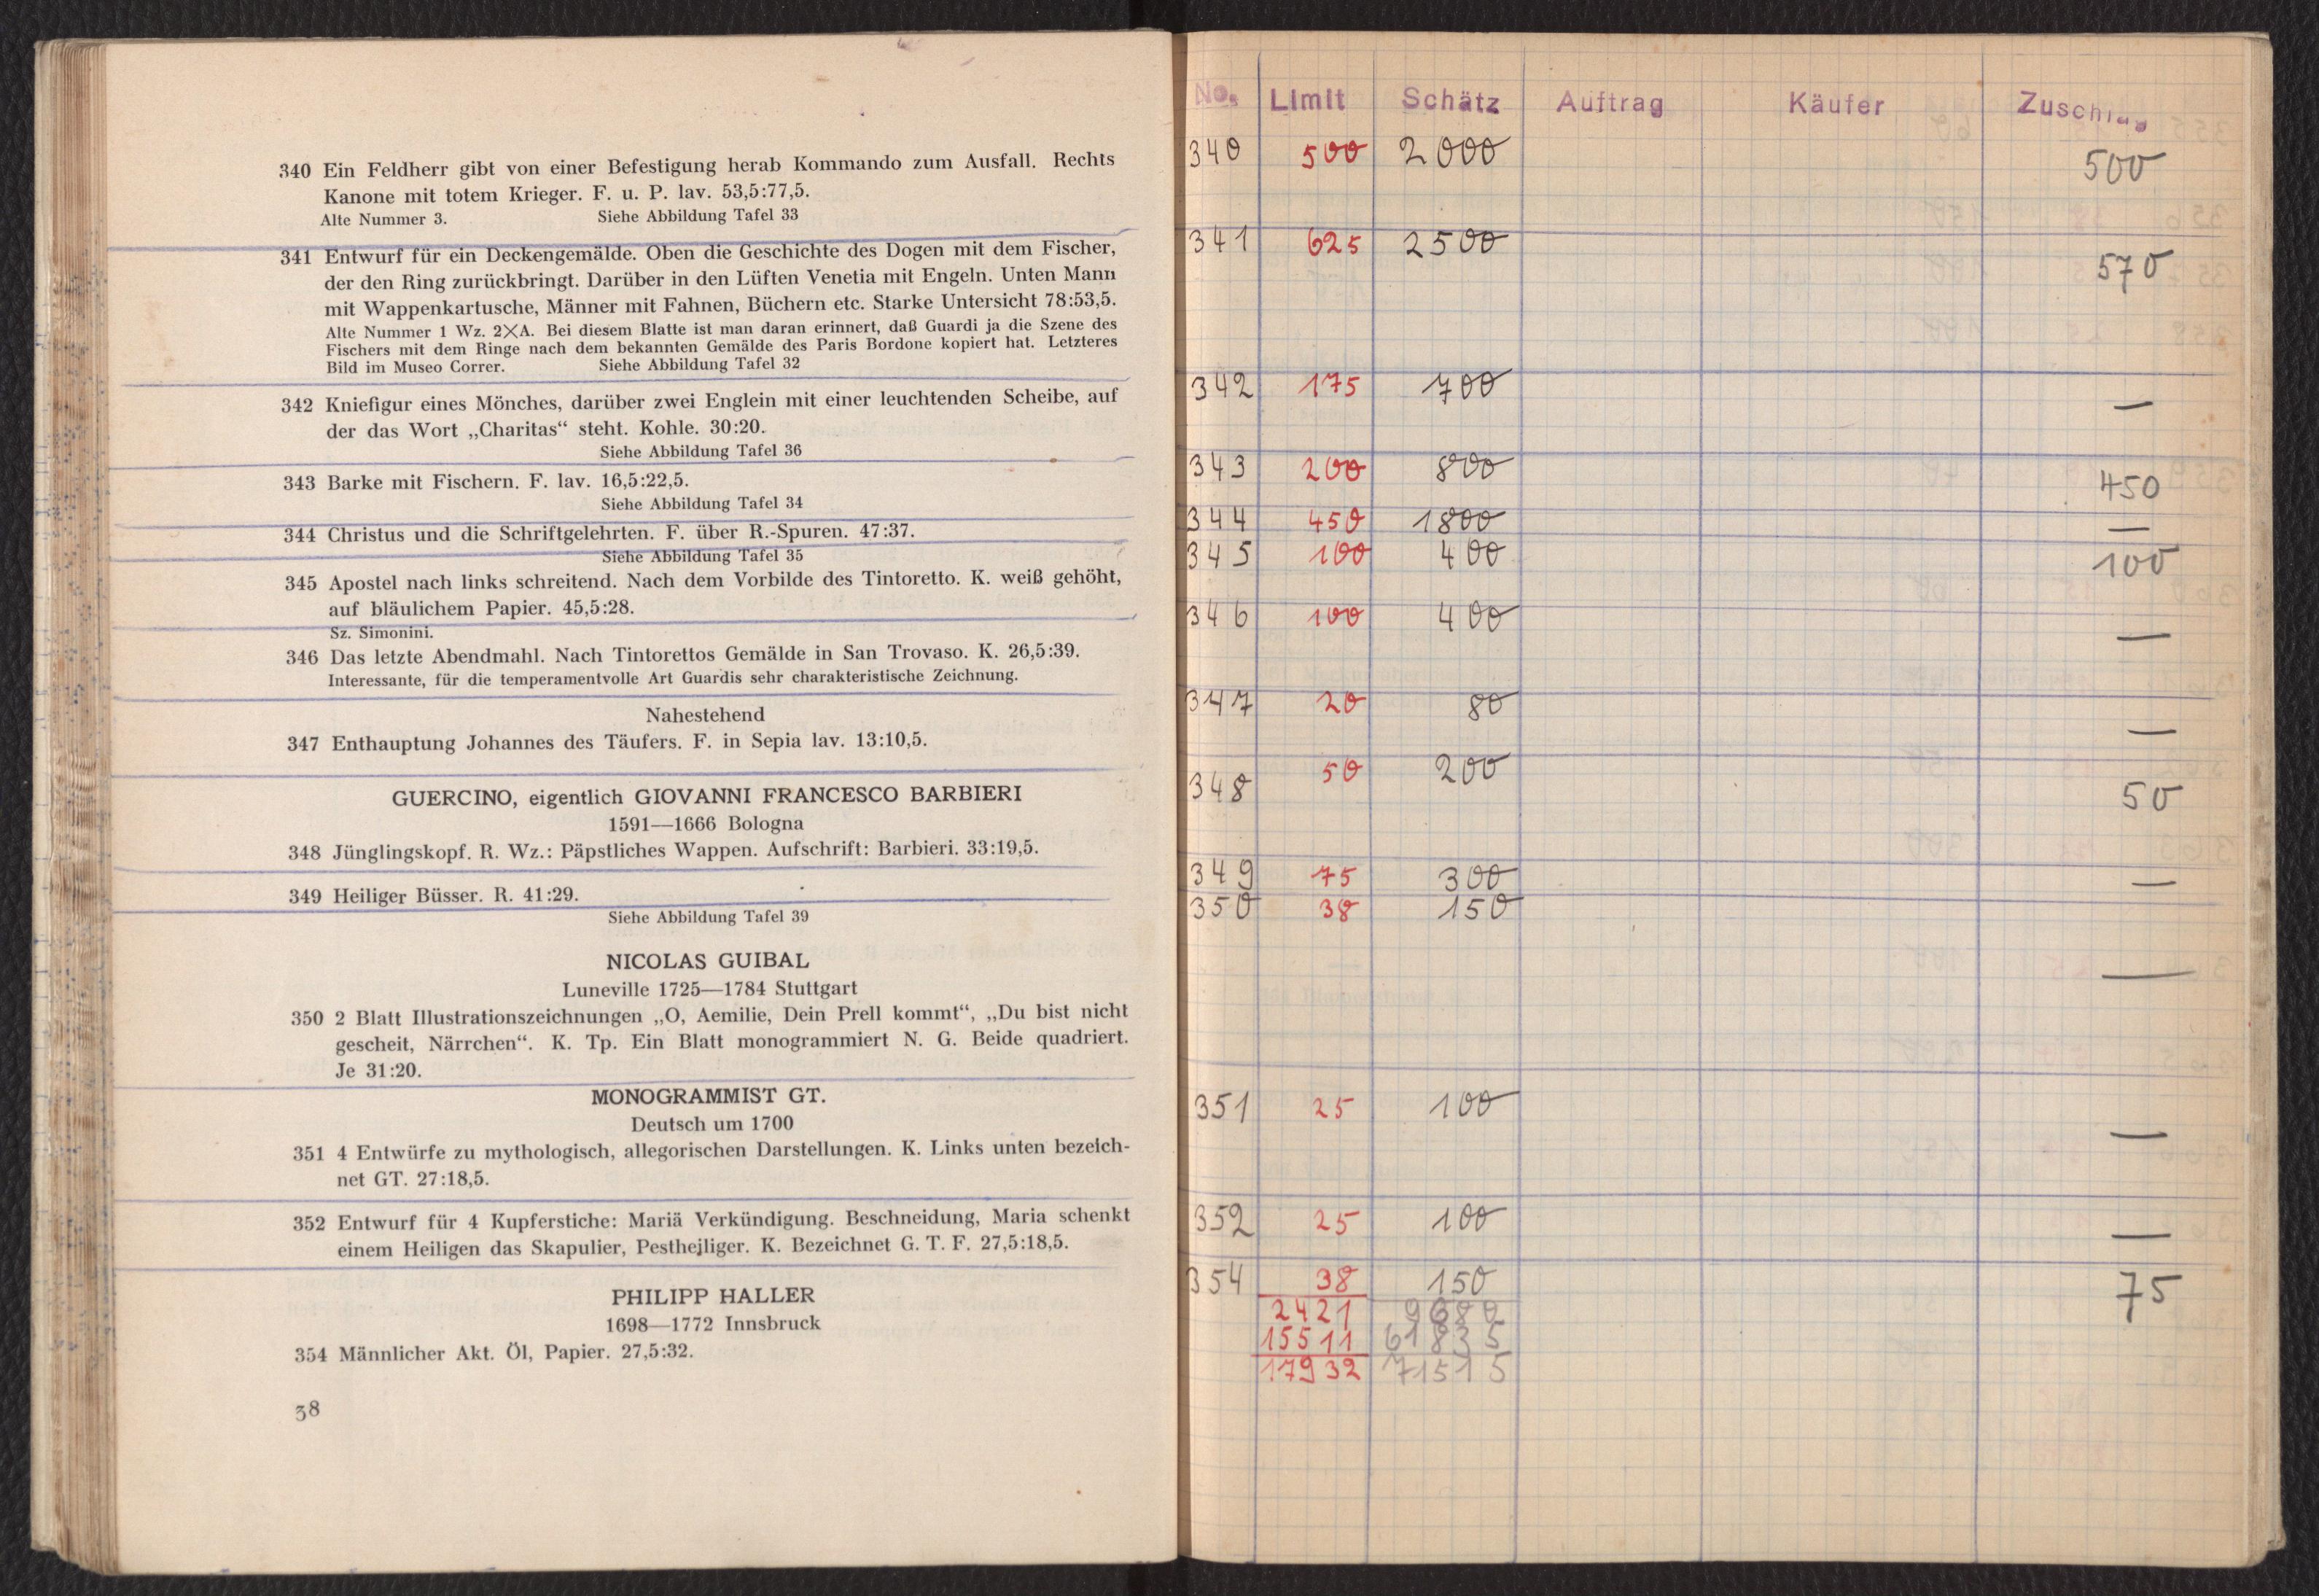 340 Ein Feldherr gibt von einer Befestigung herab Kommando zum Ausfall. Rechts
Kanone mit totem Krieger. F. u. P. lav. 53,5:77,5.
Alte Nummer 3. Siehe Abbildung Tafel 33
341 Entwurf für ein Deckengemälde. Oben die Geschichte des Dogen mit dem Fischer,
der den Ring zurückbringt. Darüber in den Lüften Venetia mit Engeln. Unten Mann
mit Wappenkartusche, Männer mit Fahnen, Büchern etc. Starke Untersicht 78:53,5.
Alte Nummer 1 Wz. 2×A. Bei diesem Blatte ist man daran erinnert, daß Guardi ja die Szene des
Fischers mit dem Ringe nach dem bekannten Gemälde des Paris Bordone kopiert hat. Letzteres
Bild im Museo Correr. Siehe Abbildung Tafel 32
342 Kniefigur eines Mönches, darüber zwei Englein mit einer leuchtenden Scheibe, auf
der das Wort „Charitas“ steht. Kohle. 30:20.
Siehe Abbildung Tafel 36
343 Barke mit Fischern. F. lav. 16,5:22,5.
Siehe Abbildung Tafel 34
344 Christus und die Schriftgelehrten. F. über R.-Spuren. 47:37.
Siehe Abbildung Tafel 35
345 Apostel nach links schreitend. Nach dem Vorbilde des Tintoretto. K. weiß gehöht,
auf bläulichem Papier. 45,5:28.
Sz. Simonini.
346 Das letzte Abendmahl. Nach Tintorettos Gemälde in San Trovaso. K. 26,5:39.
Interessante, für die temperamentvolle Art Guardis sehr charakteristische Zeichnung.
Nahestehend
347 Enthauptung Johannes des Täufers. F. in Sepia lav. 13:10,5.
GUERCINO, eigentlich GIOVANNI FRANCESCO BARBIERI
1591—1666 Bologna
348 Jünglingskopf. R. Wz.: Päpstliches Wappen. Aufschrift: Barbieri. 33:19,5.
349 Heiliger Büsser. R. 41:29.
Siehe Abbildung Tafel 39
NICOLAS GUIBAL
Luneville 1725—1784 Stuttgart
350 2 Blatt Illustrationszeichnungen „O, Aemilie, Dein Prell kommt“, „Du bist nicht
gescheit, Närrchen“. K. Tp. Ein Blatt monogrammiert N. G. Beide quadriert.
Je 31:20.
MONOGRAMMIST GT.
Deutsch um 1700
351 4 Entwürfe zu mythologisch, allegorischen Darstellungen. K. Links unten bezeich-
net GT. 27:18,5.
352 Entwurf für 4 Kupferstiche: Mariä Verkündigung. Beschneidung, Maria schenkt
einem Heiligen das Skapulier, Pestheiliger. K. Bezeichnet G. T. F. 27,5:18,5.
PHILIPP HALLER
1698—1772 Innsbruck
354 Männlicher Akt. Öl, Papier. 27,5:32.
38
No. Limit Schätz Auftrag Käufer Zuschlag
340 500 2000 500
341 625 2500 570
342 175 700 —
343 200 800 450
344 450 1800 —
345 100 400 100
346 100 400 —
347 20 80 —
348 50 200 50
349 75 300 —
350 38 150 —
351 25 100 —
352 25 100 —
354 38 150 75
2421 9680
15511 61835
17932 71515